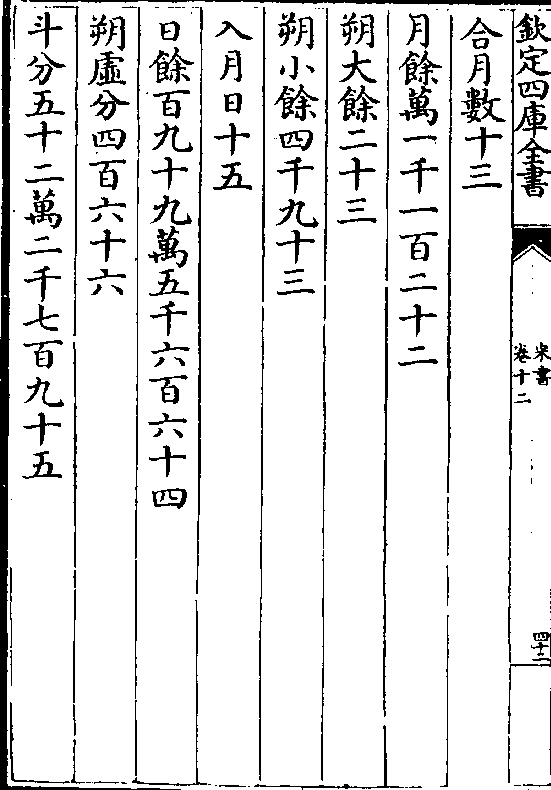 欽定四庫全書
宋書
卷十二
四十二
合月數十三
月餘萬一千一百二十二
朔大餘二十三
朔小餘四千九十三
入月日十五
日餘百九十九萬五千六百六十四
朔虛分四百六十六
斗分五十二萬二千七百九十五